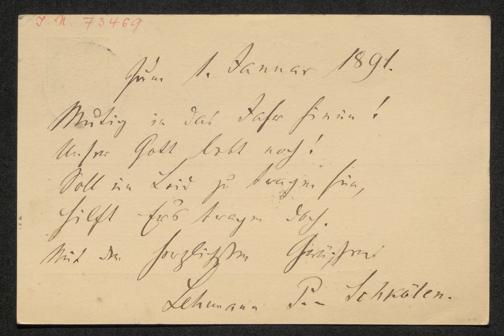 I. N. 73469
Zum 1. Januar 1891.
Mutig in das Jahr hinein!
Unser Gott lebt noch!
Soll ein Leid zu tragen sein,
Hilft Er's tragen doch.
Mit den herzlichsten Grüßen
Lehmann P. - Schkölen.